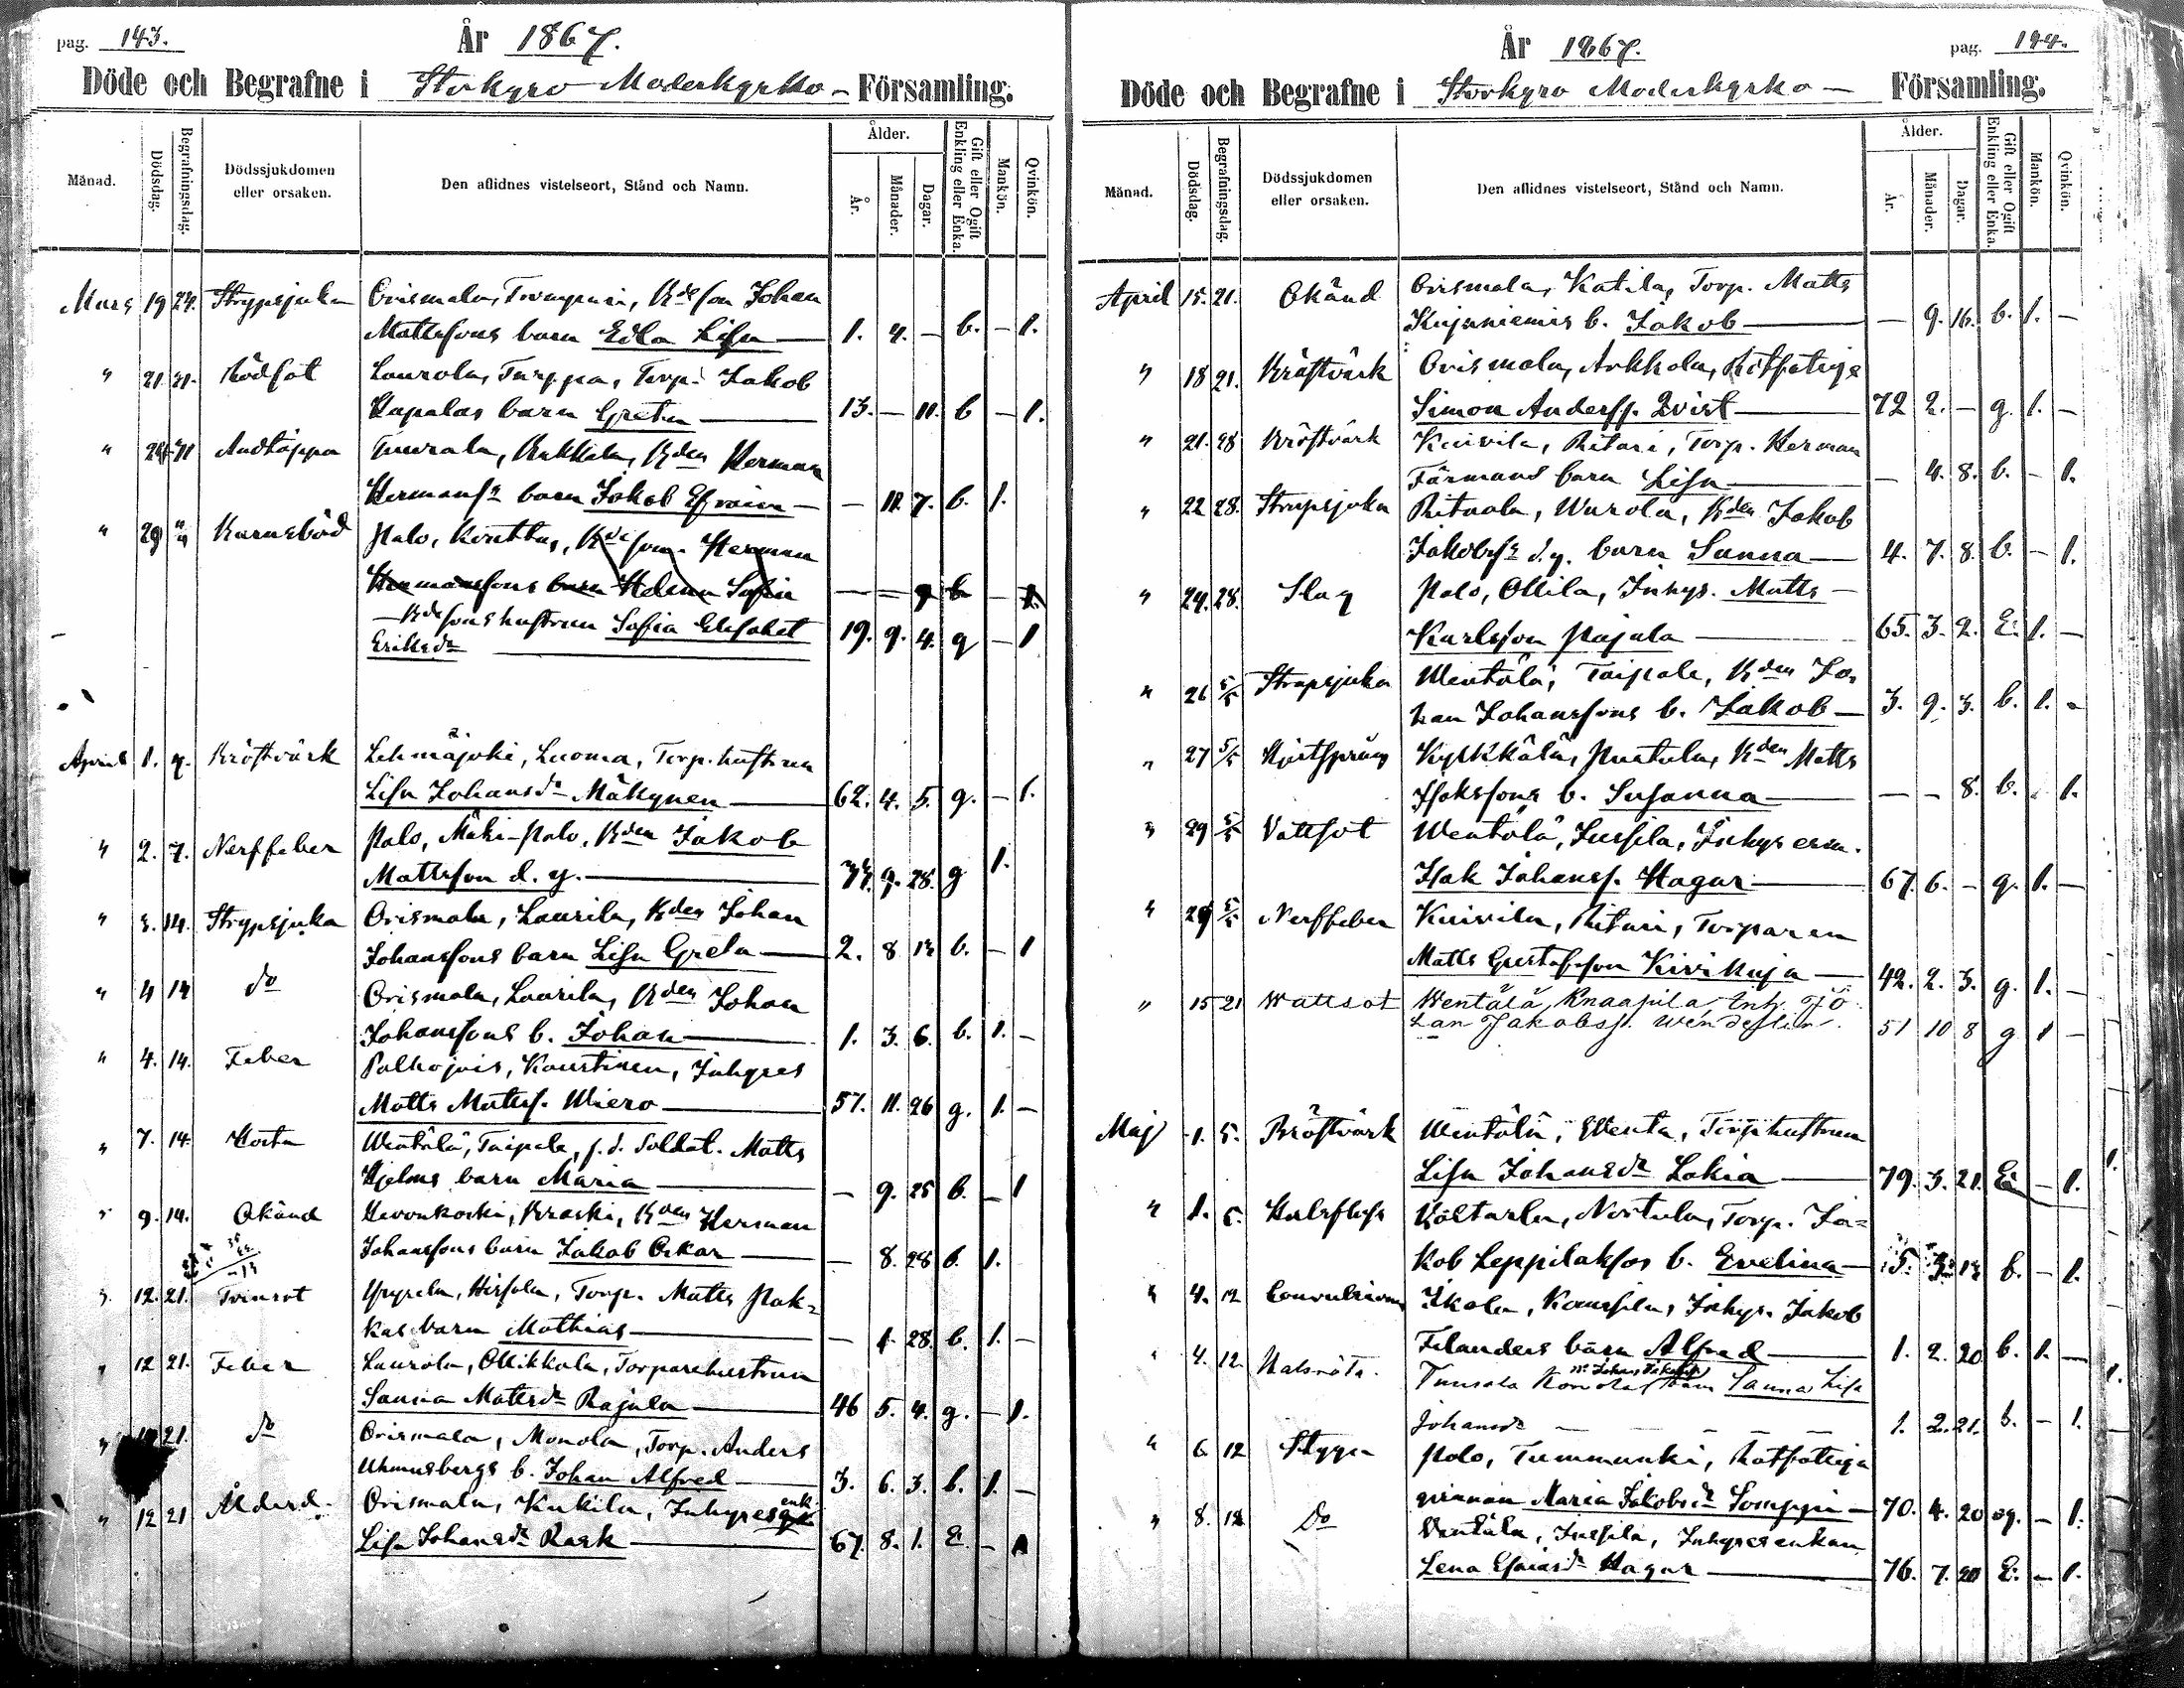 pag. 143.
År 1867.
Döde och Begrafne i Storkyro Moderkyrko- Församling.
Månad.
Dödsdag.
Begrafningsdag.
Dödssjukdomen eller orsaken.
Den aflidnes vistelseort, Stånd och Namn.
Ålder.
År.
Månader.
Dagar.
Gift eller Ogift Enkling eller Enka.
Mankön.
Qvinkön.
Mars 19 24. Strypsjuka Orismala, Trompari, Bdeson Johan
Mattssons barn Edla Lisa — 1. 4. — b. — 1.
" 21. 31. Rödsot Laurola, Turppa, Torp. Jakob
Hapalas barn Greta — 13. — 11. b — 1.
" 24 31 Andtäppa Tuurala, Rukkila, Bden Herman
Hermanss barn Jakob Efraim — — 11. 7. b. 1.
" 29 " Barnsböd Palo, Konttas, Bdeson Herman
Hermanssons barn Helena Sofia — — 9 b — 1.
— Bdesons hustrun Sofia Elisabet 19. 9. 4. g — 1
Eriksdr
April 1. 7. Bröstvärk Lehmäjoki, Luoma, Torp. hustrun
Lisa Johansdr Mäkynen — 62. 4. 5. g. — 1.
" 2. 7. Nerffeber Palo, Mäki-Palo, Bden Jakob
Mattsson d. y. — 9. 28. g 1.
" 3. 14. Strypsjuka Orismala, Laurila, Bden Johan
Johanssons barn Lisa Greta — 2. 8 13 b. — 1
" 4 14 do Orismala, Laurila, Bden Johan
Johanssons b. Johan — 1. 3. 6. b. 1. —
" 4. 14. Feber Palhojais, Kaurtinen, Inhyses
Matts Matts. Wiero — 57. 11. 26 g. 1. —
" 7. 14. Hosta Wentälä, Taipale, f. d. Soldat. Matts
Hjelms barn Maria — — 9. 25 b. — 1
" 9. 14. Okänd Hevonkoski, Kraski, Bden Herman
Johanssons barn Jakob Oskar — — 8. 28 b. 1.
" 12. 21. Tvinsot Ypyrela, Hirsola, Torp. Matts Pak-
kas barn Mathias — — 1. 28. b. 1. —
" 12 21. Feber Laurola, Ollikkala, Torparehustrun
Sanna Mattsdr Rajala — 46 5. 4. g. — 1.
" 21. do Orismala, Monola, Torp. Anders
b. Johan Alfred — 3. 6. 3. b. 1. —
" 12 21 Ålderd. Orismala, Kukila, Inhyses enk.
Lisa Johansdr Rask — 67. 8. 1. E. — 1
År 1867.
pag. 144.
Döde och Begrafne i Storkyro Moderkyrko — Församling.
Månad.
Dödsdag.
Begrafningsdag.
Dödssjukdomen eller orsaken.
Den aflidnes vistelseort, Stånd och Namn.
Ålder.
År.
Månader.
Dagar.
Gift eller Ogift Enkling eller Enka.
Mankön.
Qvinkön.
April 15. 21. Okänd Orismala, Katila, Torp. Matts
Kujaniemis b. Jakob — — 9. 16. b. 1. —
" 18 21. Bröstvärk Orismala, Arkkola, Rotfatige
Simon Anderss. Qvist — 72 2. — g. 1. —
" 21. 28 Bröstvärk Kuivila, Ritari, Torp. Herman
Färmans barn Lisa — — 4. 8. b. — 1.
" 22 28. Strypsjuka Ritaala, Wurola, Bden Jakob
Jakobss d. y. barn Sanna — 4. 7. 8. b. — 1.
" 24. 28. Slag Palo, Ollila, Inhys. Matts —
Karlsson Pajula — 65. 3. 2. E. 1. —
" 26 5/5 Strypsjuka Wentälä, Taipale, Bden Jo-
han Johanssons b. Jakob — 3. 9. 3. b. 1. —
" 27 5/5 Hjertsprång Kyrkkälä, Puntula, Bden Matts
Isakssons b. Susanna — — — 8. b. — 1.
" 29 5/5 Vattsot Wentälä, Jussila, Inhysesm.
Isak Johanss. Hagar — 67. 6. — g. 1. —
" 29 5/5 Nerffeber Kuivila, Ritari, Torparen
Matts Gustafsson Kivikuja — 42. 2. 3. g. 1. —
" 15 21 Wattsot Wentälä, Knaapila Inh. Jo-
han Jakobss. Wendelin. 51 10 8 g 1 —
Maj 1. 5. Bröstvärk Wentälä, Wenta, Torp hustrun
Lisa Johansdr Lokia — 79. 3. 21. E. — 1.
" 1. 5. Halsfluss Költarla, Nortula, Torp. Ja-
kob Leppilaksos b. Evelina — 5. 3. 13 b. — 1.
" 4. 12 Convulsioner Ikola, Kaursila, Inhys. Jakob
Filanders barn Alfred — 1. 2. 20 b. 1. —
" 4. 12. Halsröta. Tuurala Konola Johan barn Sanna Lisa
Johansdr — 1. 2. 21. b. — 1.
" 6. 12 Stygn Palo, Tummunki, Rotfattiga
qvinnan Maria Jakobsdr Somppi — 70. 4. 20 og. — 1.
" 8. 12 Do Wentälä, Jussila, Inhysesenkan
Lena Esaiasdr Hagar — 76. 7. 20 E. — 1.